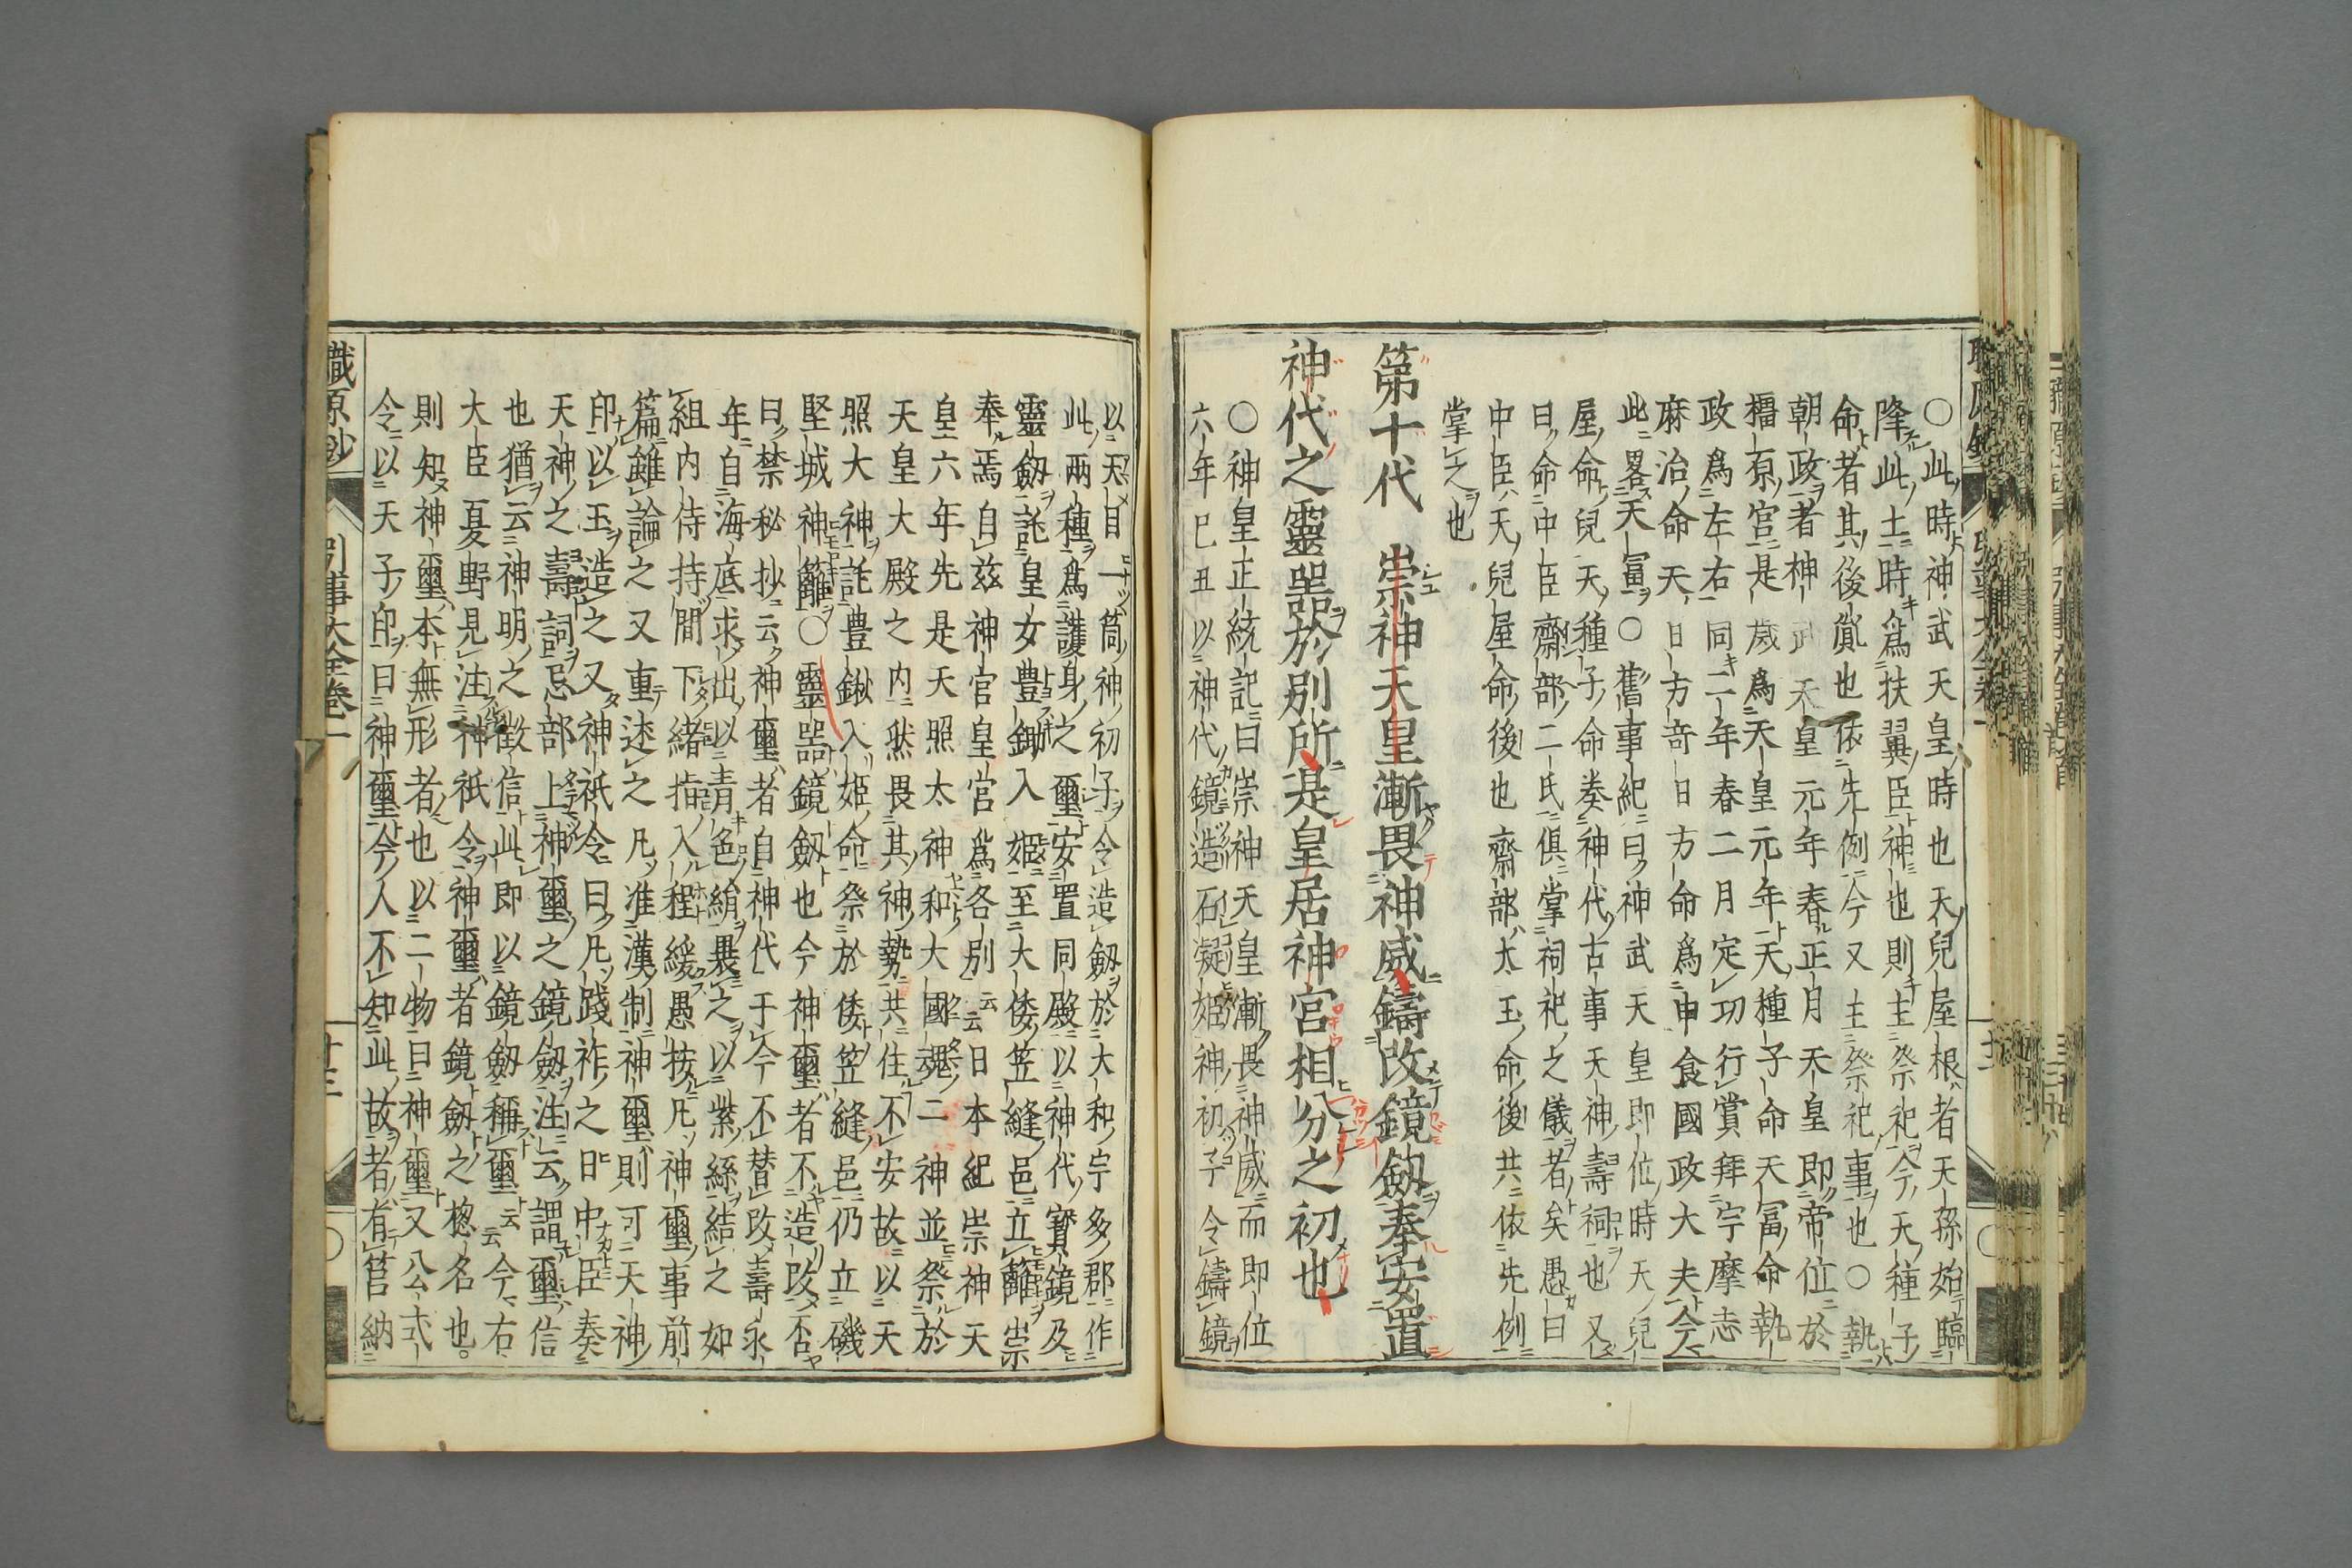 ○此時神武天皇時也天兒屋根者天孫始臨
降此土時爲扶翼臣神也則主祭祀今天種子
命者其後胤也依先例今又主祭祀事也○執
朝政者神武天皇元年春正月天皇即帝位於
橿原宮是歲爲天皇元年天種子命天冨命執
政爲左右同二年春二月定功行賞拜宇摩志
麻治命天日方竒日方命爲申食國政大夫今
此畧天冨○舊事紀曰神武天皇即位時天兒
屋命兒天種子命奏神代古事天神壽詞也又
曰命中臣齋部二氏俱掌祠祀之儀者矣愚曰
中臣天兒屋命後也齋部太玉命後共依先例
掌之也
第十代 崇神天皇漸畏神威鑄改鏡劔奉安置
神代之靈噐於別所是皇居神宮相分之初也
○神皇正統記曰崇神天皇漸畏神威而即位
六年巳丑以神代鏡造石凝姫神初子令鑄鏡
以天目一筒神初子令造劔於大和宇多郡作
此兩種爲護身之璽安置同殿以神代寶鏡及
靈劔託皇女豊鋤入姫至大倭笠縫邑立籬崇
奉焉自兹神宮皇宮爲各別云云日本紀崇神天
皇六年先是天照太神和大國魂二神並祭於
天皇大殿之内然畏其神勢共住不安故以天
照大神託豊鍬入姫命祭於倭笠縫邑仍立磯
堅城神籬○靈噐鏡劔也今神璽者不造改否
曰禁秘抄云神璽者自神代于今不替改壽永
年自海底求出以青色絹裹之以紫絲結之如
組内侍持間下緒指入程緩愚按凡神璽事前
篇雖論之又重述之凡准漢制神璽則可天神
印以玉造之又神祇令曰凡踐祚之日中臣奏
天神之壽詞忌部上神璽之鏡劔注云謂璽信
也猶云神明之徴信此即以鏡劔稱璽云今右
大臣夏野見注神祇令神璽者鏡劔之惣名也。
則知神璽本無形者也以二物曰神璽又公式
令以天子印曰神璽今人不知此故者有筥納
職原抄
引事大全卷一
十三